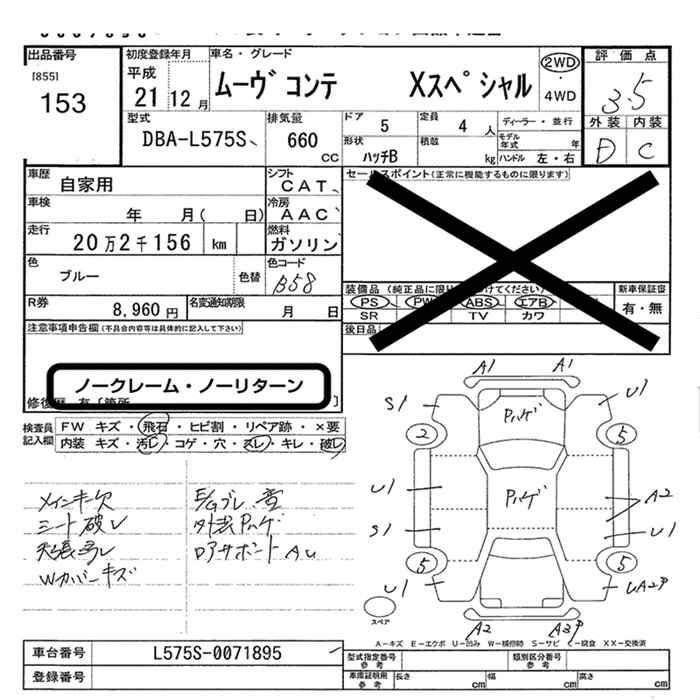 出品番号
[855]
153
初度登録年月
平成
21 12 月
車名・グレード
ムーヴ コンテ Xスペシャル
2WD
・
4WD
評価点
3.5
外装 内装
D C
型式
DBA-L575S
排気量
660
CC
ドア 5
定員 4 人
ディーラー・並行
形状
ハッチB
積載
kg
モデル年式 年
ハンドル 左・右
車歴 自家用
シフト
CAT
車検 年 月( 日)
冷房
AAC
走行 20万2千156 km
燃料
ガソリン
色 ブルー
色替
色コード
B58
R券 8,960 円
名変通知期限
月 日
セールスポイント(正常に機能するものに限ります)
装備品(純正品に限り けてください)
PS PW ABS エアB
SR TV カワ
新車保証書
有・無
後日品
注意事項申告欄(不具合内容等は具体的に記入して下さい)
ノークレーム・ノーリターン
修復歴 有〔箇所 〕
検査員記入欄
FW キズ・飛石・ヒビ割・リペア跡・×要
内装 キズ・汚レ・コゲ・穴・スレ・キレ・破レ
メインキー欠
シート破レ
天張汚レ
Wカバーキズ
E/Gブレ、音
外装Pハゲ
ロアサポートAU
A1 A1
S1 U1
Pハゲ
2 5
U1 Pハゲ A2
S1 U1
5 5
U1 UA2P
スペア
A2 A3P
A-キズ E-エクボ U-凹み W-補修跡 S-サビ C-腐食 XX-交換済
車台番号 L575S-0071895
登録番号
型式指定番号
参考
類別区分番号
参考
車庫証明用
参考
長さ cm
幅 cm
高さ cm